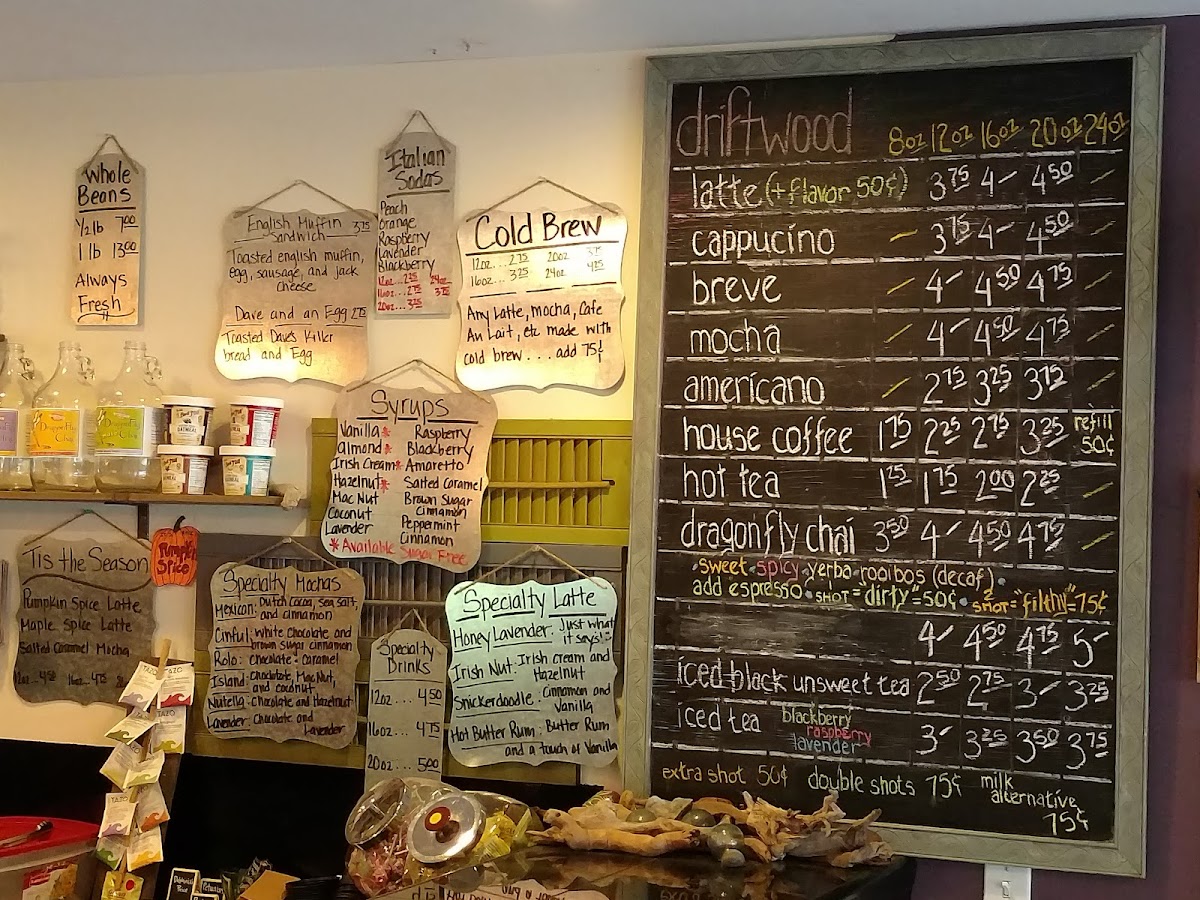 Whole
Beans
1/2 lb 7.00
1 lb 13.00
Always
Fresh
English Muffin 3.75
Sandwich
Toasted english muffin,
egg, sausage, and jack
cheese
Dave and an Egg 2.75
Toasted Dave's Killer
bread and Egg
Italian
Sodas
Peach
Orange
Raspberry
Lavender
Blackberry
12oz...2.25 24oz
16oz...2.75 3.75
20oz...3.25
Cold Brew
12oz...2.75 20oz 3.75
16oz...3.25 24oz 4.25
Any Latte, mocha, Cafe
Au Lait, etc made with
cold brew.... add 75¢
Syrups
Vanilla* Raspberry
almond* Blackberry
Irish Cream* Amaretto
Hazelnut* Salted Caramel
Mac Nut Brown Sugar
Coconut Cinnamon
Lavender Peppermint
Cinnamon
*Available Sugar Free
'Tis the Season
Pumpkin Spice Latte
Maple Spice Latte
Salted Caramel Mocha
12oz...4.50 16oz...4.75
Pumpkin
Spice
Specialty Mochas
Mexican: Dutch cocoa, sea salt,
and cinnamon
Cinful: White Chocolate and
brown sugar cinnamon
Rolo: Chocolate + Caramel
Island: Chocolate, Mac Nut,
and coconut
Nutella: Chocolate and Hazelnut
Lavender: Chocolate and
Lavender
Specialty
Drinks
12oz... 4.50
16oz... 4.75
20oz... 5.00
Specialty Latte
Honey Lavender: Just what
it says!
Irish Nut: Irish Cream and
Hazelnut
Snickerdoodle: Cinnamon and
Vanilla
Hot Butter Rum: Butter Rum
and a touch of Vanilla
TAZO TAZO
driftwood 8oz 12oz 16oz 20oz 24oz
latte (+ flavor 50¢) 3.75 4- 4.50 -
cappucino - 3.75 4- 4.50 -
breve - 4- 4.50 4.75 -
mocha - 4- 4.50 4.75 -
americano - 2.75 3.25 3.75 -
house coffee 1.75 2.25 2.75 3.25 refill 50¢
hot tea 1.25 1.75 2.00 2.25 -
dragonfly chai 3.50 4- 4.50 4.75 -
• sweet • spicy • yerba • rooibos (decaf) •
add espresso • shot = "dirty" = 50¢ • 2 shot = "filthy" = 75¢
4- 4.50 4.75 5-
iced black unsweet tea 2.50 2.75 3- 3.25
iced tea blackberry raspberry lavender 3- 3.25 3.50 3.75
extra shot 50¢ double shots 75¢ milk
alternative
75¢